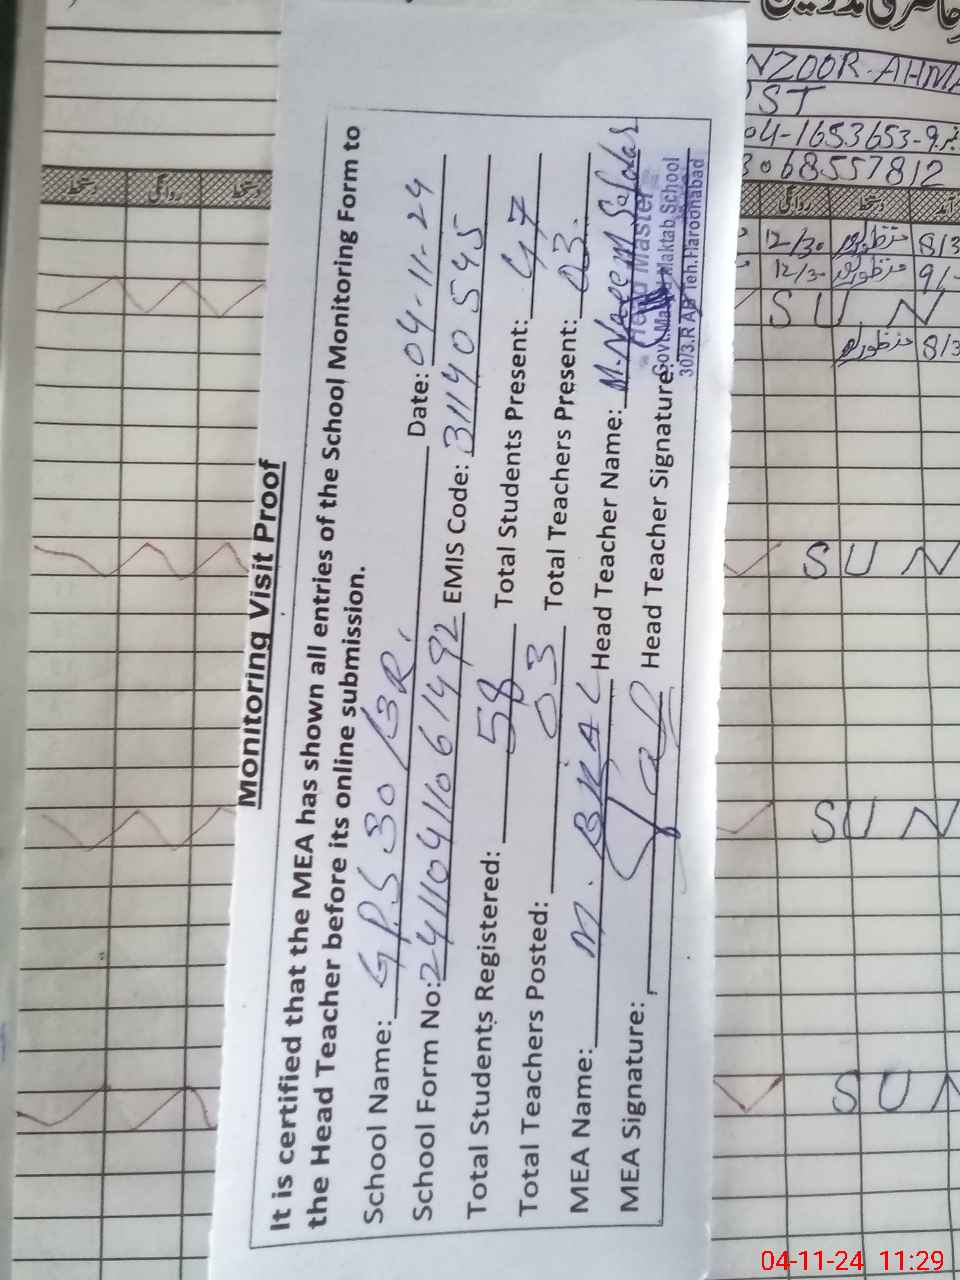 Monitoring Visit Proof
It is certified that the MEA has shown all entries of the School Monitoring Form to
the Head Teacher before its online submission.
School Name: GPS 30/3R. Date: 04-11-24
School Form No: 24110411061492 EMIS Code: 31140545
Total Students Registered: 58 Total Students Present: 47
Total Teachers Posted: 03 Total Teachers Present: 03.
MEA Name: M. BILAL Head Teacher Name: M. Naeem Safdar
MEA Signature: Head Teacher Signature:
Head Master
Govt. Maktab School
30/3.R Teh. Haroonabad
حاضری مدرسین
NZOOR-AHMA
ST
04-1653653-9
3068557812
دستخط روانگی دستخط روانگی دستخط آمد
12/30 منظور 8/3
12/30 منظور 9/-
SUN
منظور 8/3
SUN
SUN
SUN
04-11-24 11:29